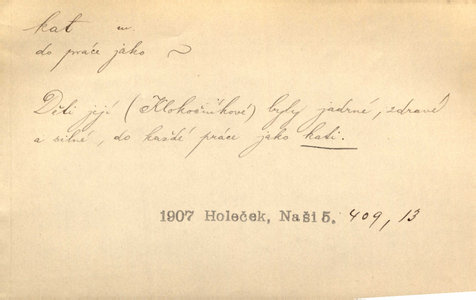 kat m.
do práce jako ~
Děti její (Klokočníkové) byly jadrné, zdravé
a silné, do každé práce jako kati.
1907 Holeček, Naši 5. 409, 13